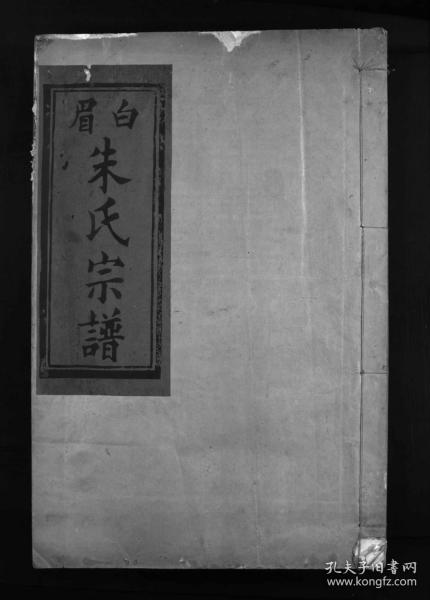 白眉
朱氏宗譜
孔夫子旧书网
www.kongfz.com